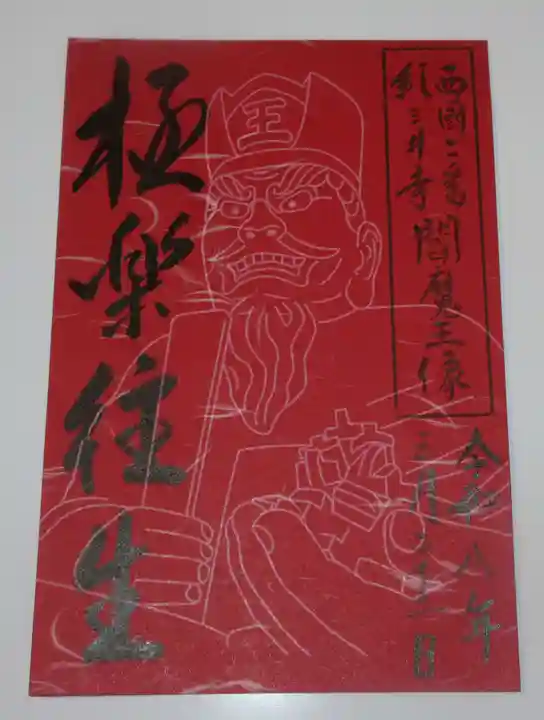 西國二番
紀三井寺 閻魔王像
令和八年
三月
日
王
極楽往生